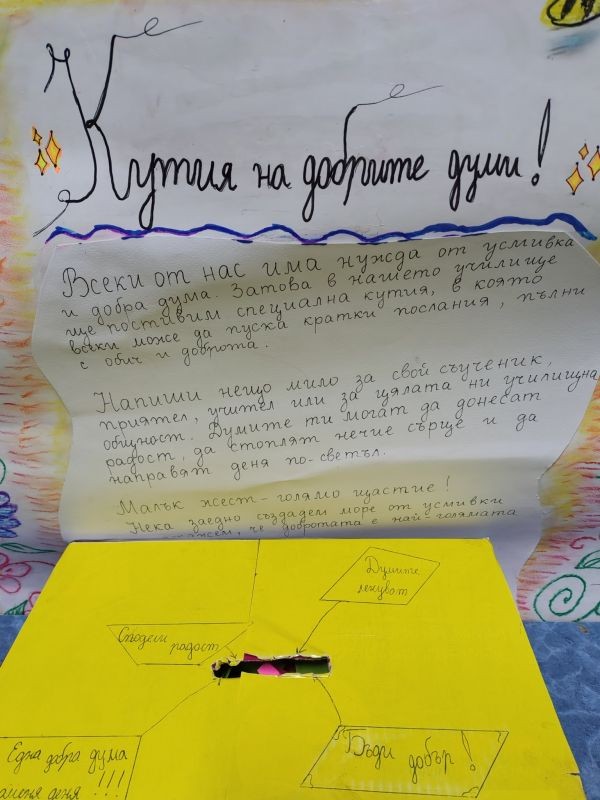 Кутия на добрите думи!
Всеки от нас има нужда от усмивка
и добра дума. Затова в нашето училище
ще поставим специална кутия, в която
всеки може да пуска кратки послания, пълни
с обич и доброта.
Напиши нещо мило за свой съученик,
приятел, учител или за цялата ни училищна
общност. Думите ти могат да донесат
радост, да стоплят нечие сърце и да
направят деня по-светъл.
Малък жест - голямо щастие!
Нека заедно създадем море от усмивки
че добротата е най-голямата
Думите
лекуват
Сподели
радост
Една добра дума
деня!!!
Бъди добър!